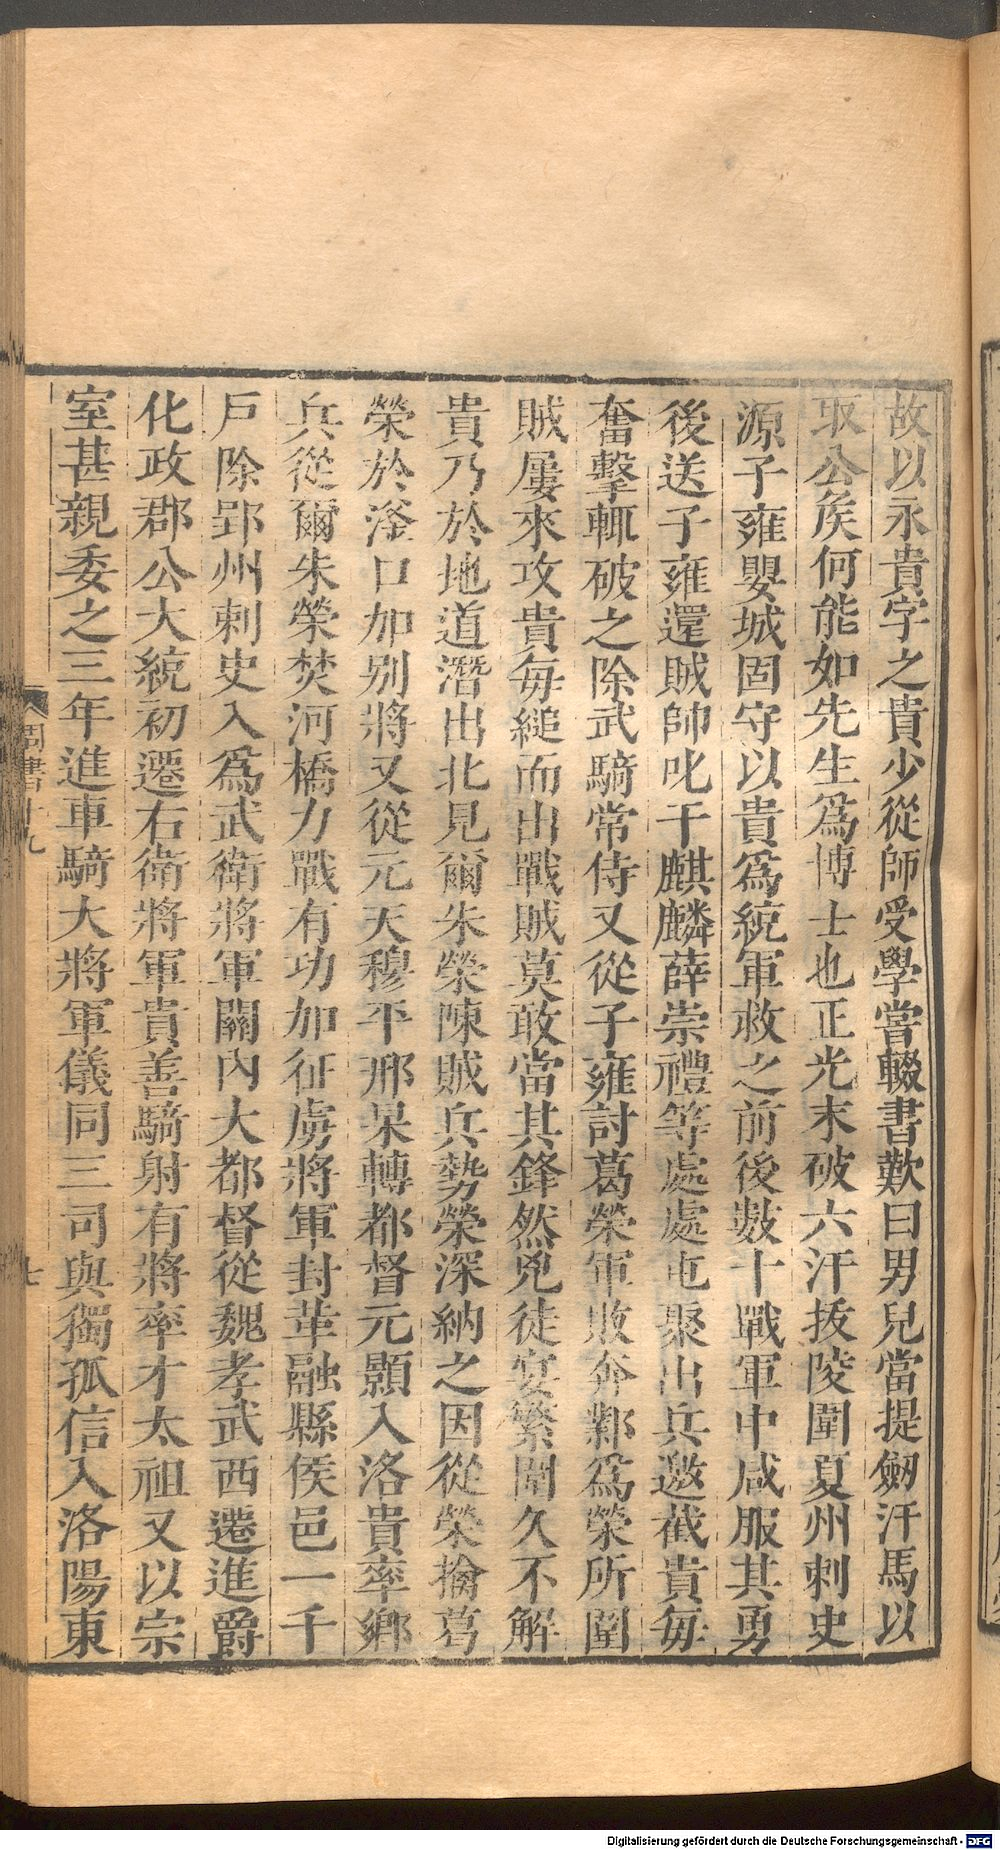 故以永貴字之貴少從師受學嘗輟書歎曰男兒當提劒汗馬以
取公矦何能如先生爲博士也正光末破六汗拔陵圍夏州刺史
源子雍嬰城固守以貴爲統軍救之前後數十戰軍中咸服其勇
後送子雍還賊帥叱干麒麟薛崇禮等處處屯聚出兵邀截貴每
奮擊輒破之除武騎常侍又從子雍討葛榮軍敗奔鄴爲榮所圍
賊屢來攻貴每縋而出戰賊莫敢當其鋒然兇徒寔繁圍久不解
貴乃於地道潛出北見爾朱榮陳賊兵勢榮深納之因從榮擒葛
榮於滏口加别將又從元天穆平邢杲轉都督元顥入洛貴率鄉
兵從爾朱榮焚河橋力戰有功加征虜將軍封革融縣侯邑一千
戸除郢州刺史入爲武衛將軍關內大都督從魏孝武西遷進爵
化政郡公大統初遷右衛將軍貴善騎射有將率才太祖又以宗
室甚親委之三年進車騎大將軍儀同三司與獨孤信入洛陽東
周書十九
七
Digitalisierung gefördert durch die Deutsche Forschungsgemeinschaft - DFG